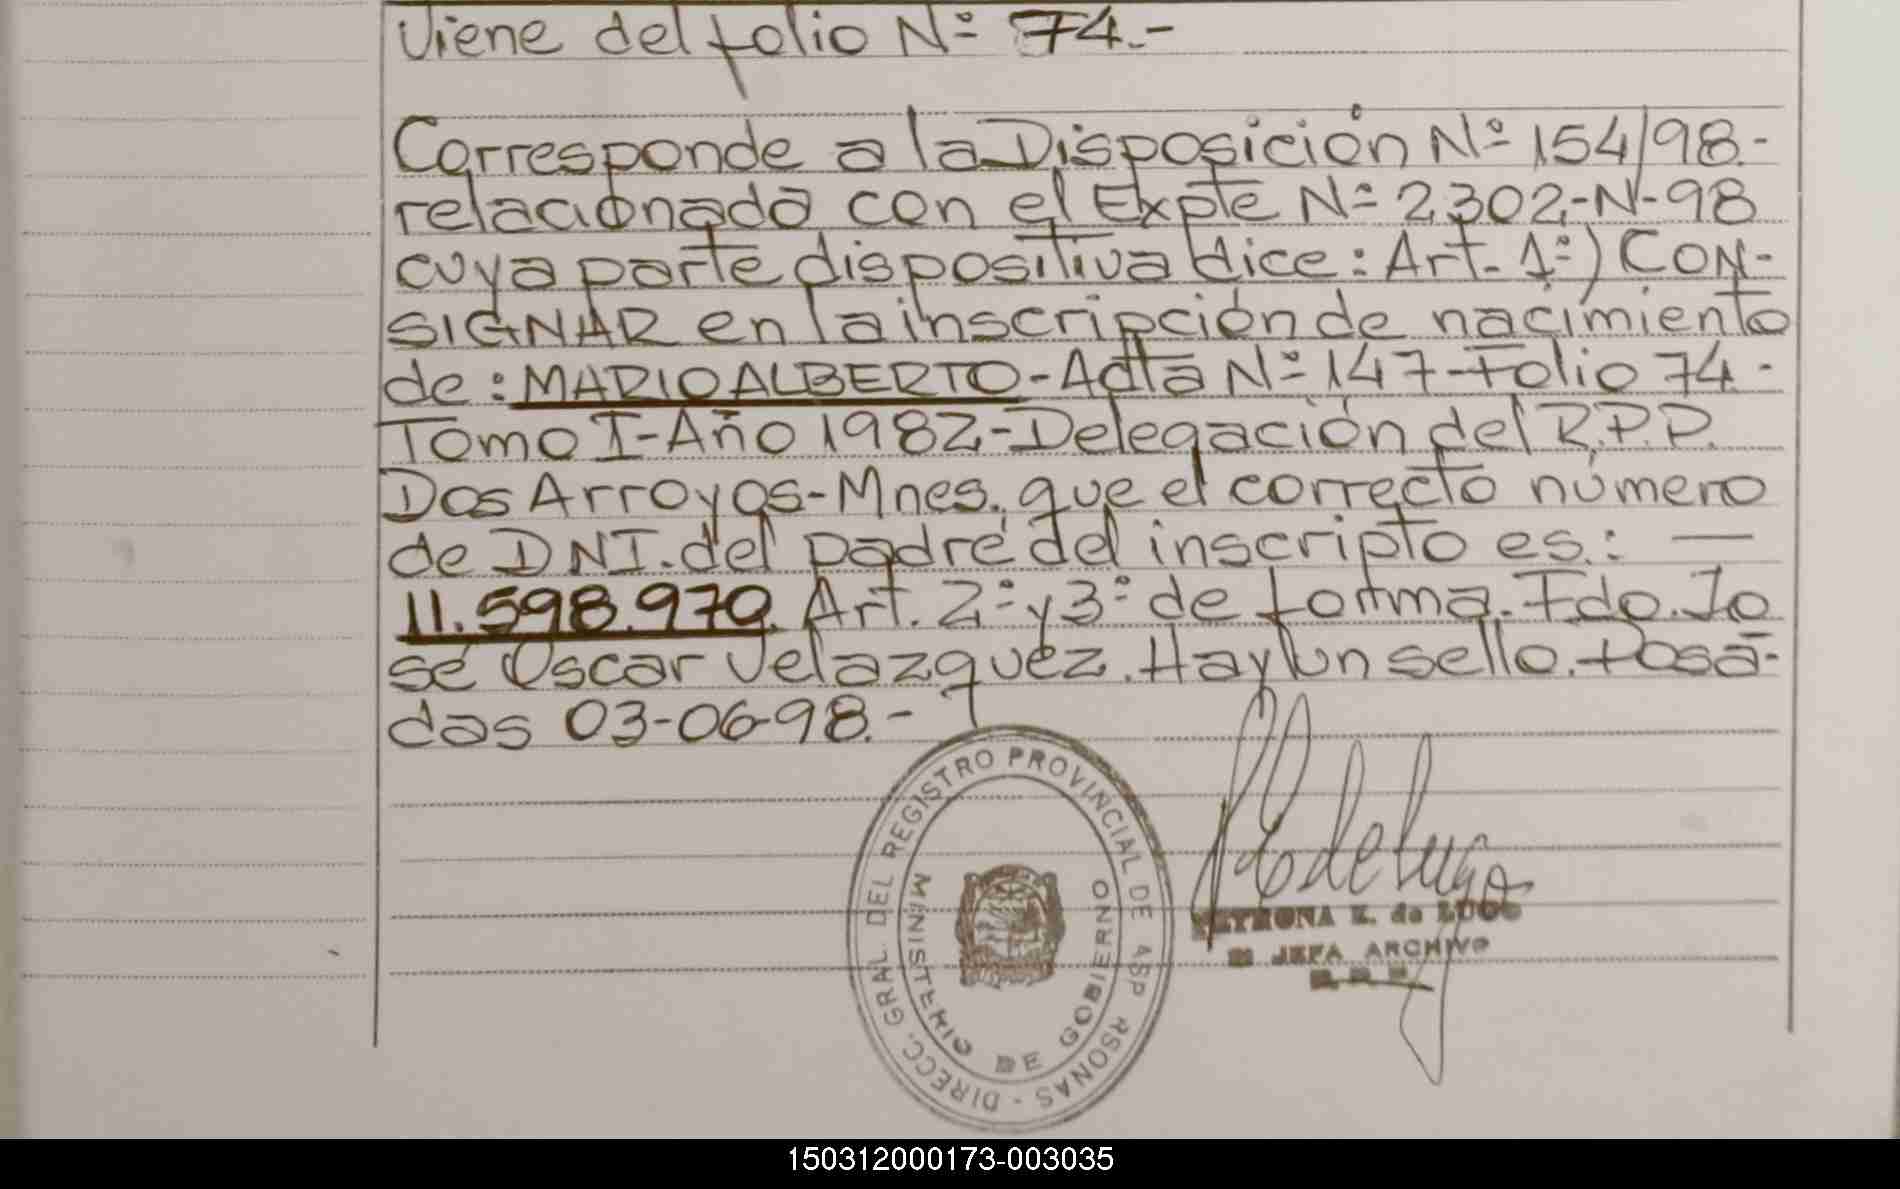 Viene del folio Nº 74.-
Corresponde a la Disposición Nº 154/98.-
relacionada con el Expte Nº 2302-N-98
cuya parte dispositiva dice: Art. 1º) CON-
SIGNAR en la inscripción de nacimiento
de: MARIO ALBERTO - Acta Nº 147 - Folio 74 -
Tomo I - Año 1982 - Delegación del R.P.P.
Dos Arroyos - Mnes. que el correcto número
de DNI. del padre del inscripto es.: —
11.598.970. Art. 2º y 3º de forma. Fdo. Jo
sé Oscar Velazquez. Hay un sello. Posa-
das 03-06-98.-
DIRECC. GRAL. DEL REGISTRO PROVINCIAL DE RSONAS -
MINISTERIO DE GOBIERNO
de Lugo
K. de LUGO
JEFA ARCHIVO
150312000173-003035